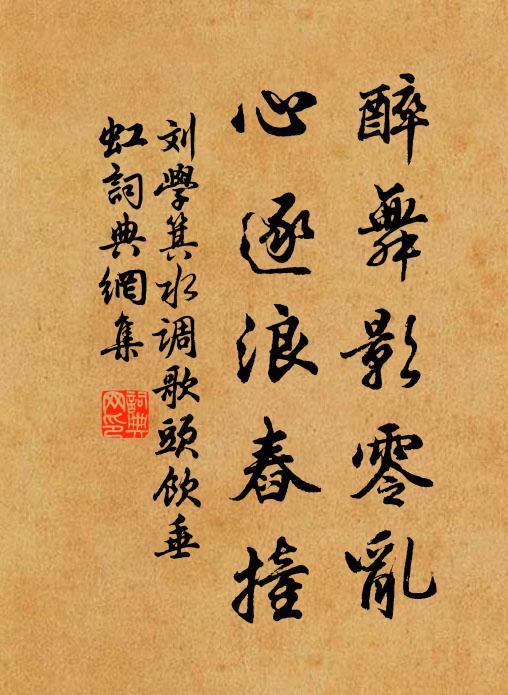 醉舞影零亂
心逐浪舂撞
刘學箕水调歌頭飲垂
虹詞典網集
詞典
网印